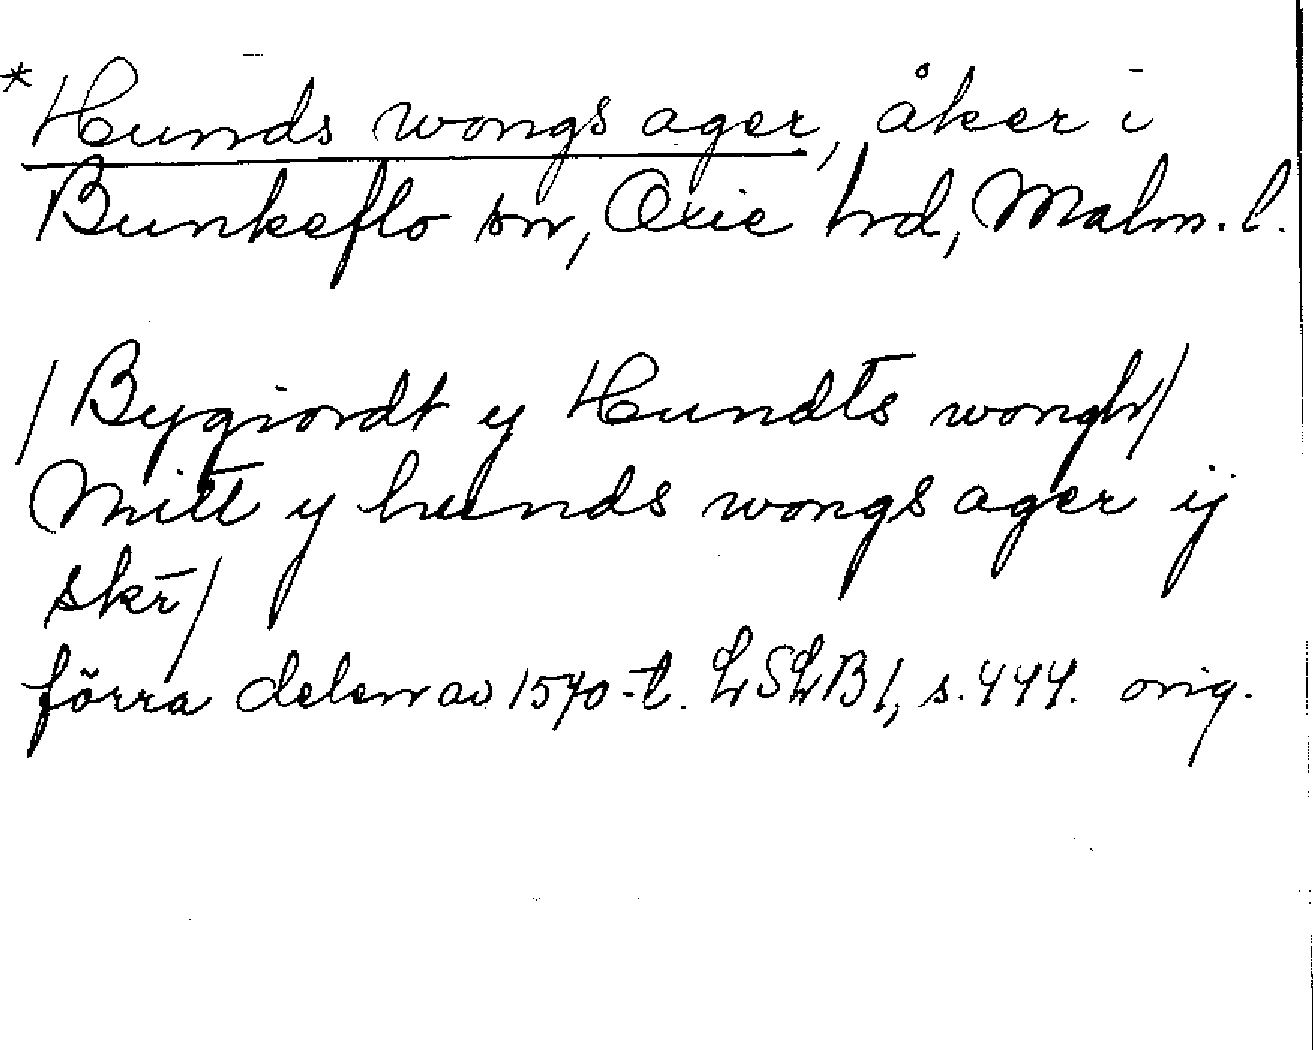 *Hunds wongs ager, åker i
Bunkeflo sn, Oxie hd, Malm. l.
/Bygiordt y Hundts wongh/
Mitt y hunds wongs ager ij
skr/
förra delen av 1570-t. LSLB 1, s. 444. orig.